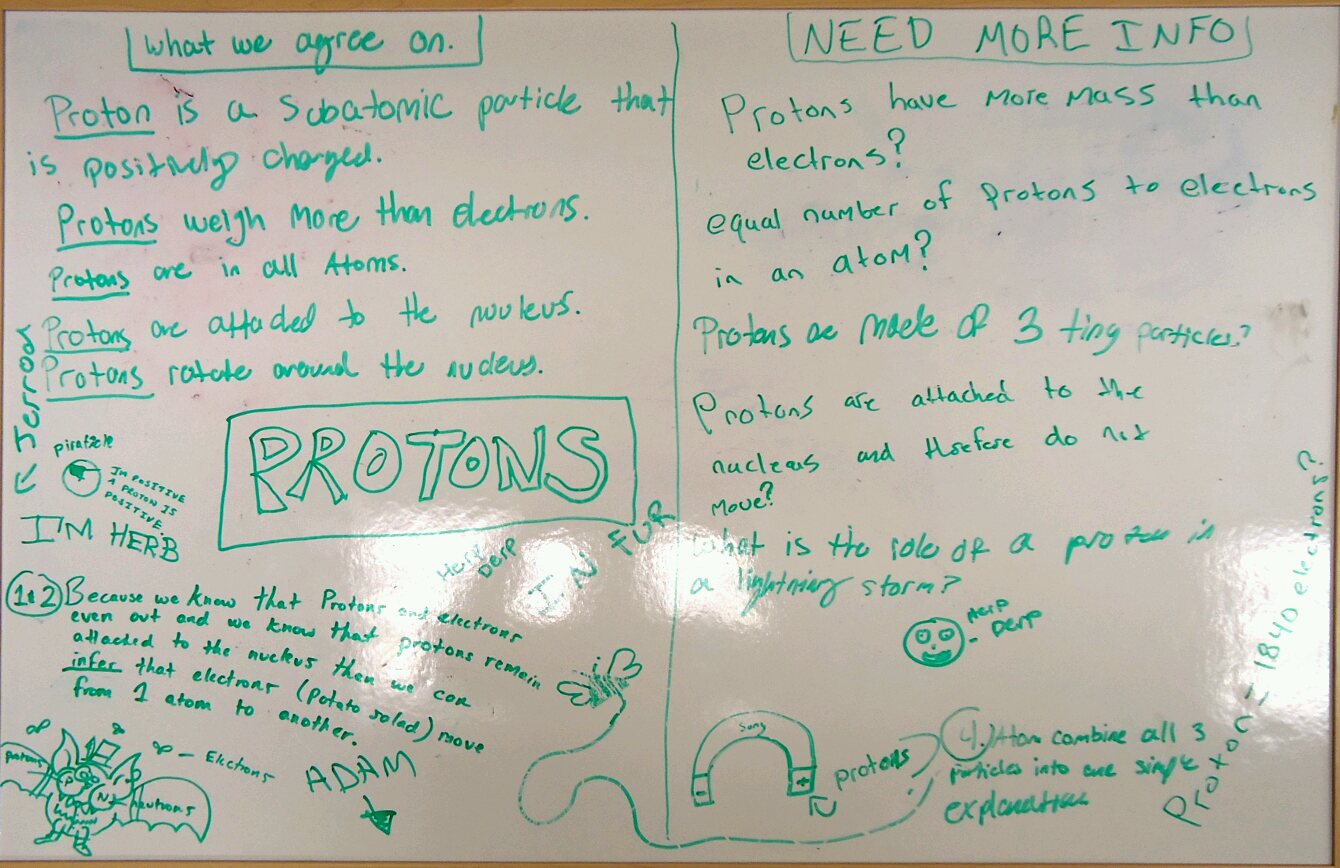 What we agree on.
Proton is a subatomic particle that
is positively charged.
Protons weigh more than electrons.
Protons are in all Atoms.
Protons are attached to the nucleus.
Protons rotate around the nucleus.
Jerrod
PROTONS
piraticle
I'M POSITIVE
A PROTON IS
POSITIVE.
I'M HERB
HERP
DERP
I N FUR
1&2) Because we know that Protons and electrons
even out and we know that protons remain
attached to the nucleus then we can
infer that electrons (potato salad) move
from 1 atom to another.
Electrons
protons
P
N
neutrons
ADAM
NEED MORE INFO
Protons have more mass than
electrons?
equal number of Protons to electrons
in an atom?
Protons are made of 3 tiny particles?
Protons are attached to the
nucleus and therefore do not
move?
What is the role of a proton in
a lightning storm?
HERP
DERP
Sony
-
+
protons
4.) Atom combine all 3
particles into one simple
explanation
Proton = 1840 electrons?